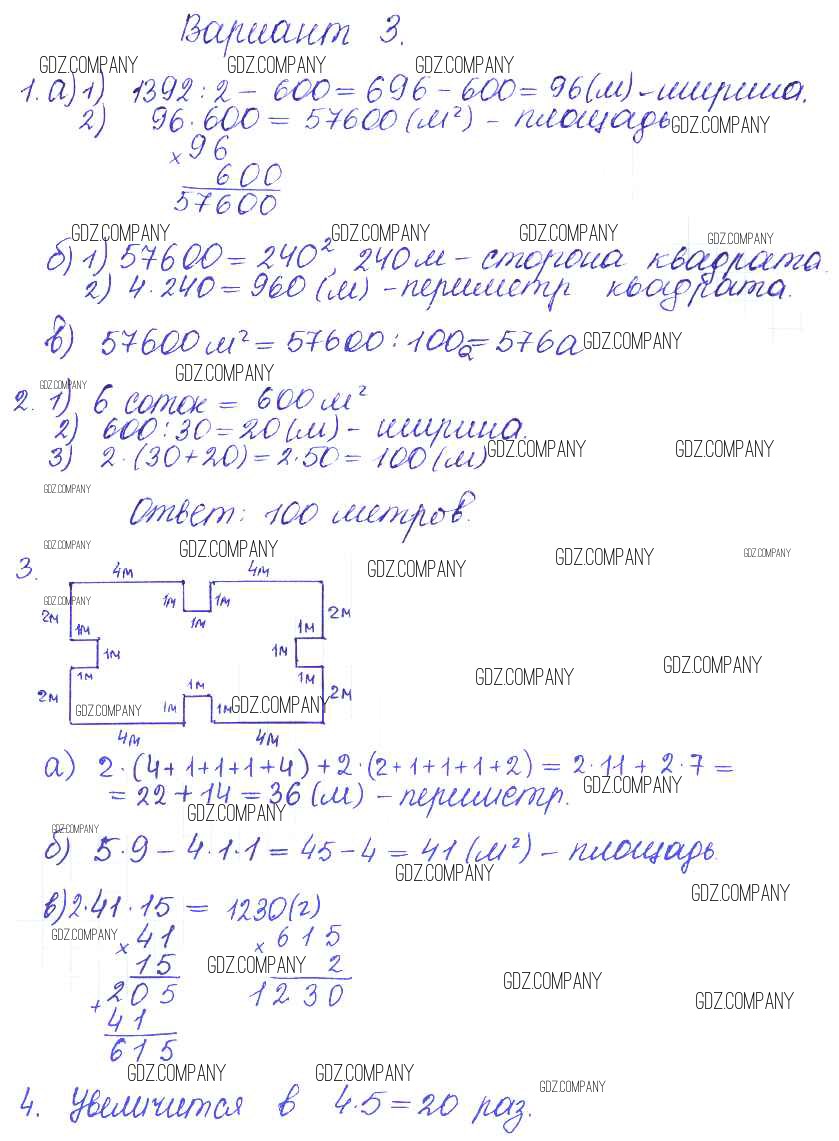 Вариант 3.
GDZ.COMPANY GDZ.COMPANY GDZ.COMPANY
1. а) 1) 1392 : 2 - 600 = 696 - 600 = 96 (м) - ширина.
2) 96 · 600 = 57600 (м²) - площадь GDZ.COMPANY
× 96
600
57600
GDZ.COMPANY GDZ.COMPANY GDZ.COMPANY GDZ.COMPANY
б) 1) 57600 = 240², 240 м - сторона квадрата.
2) 4 · 240 = 960 (м) - периметр квадрата.
в) 57600 м² = 57600 : 100 = 576 а GDZ.COMPANY
GDZ.COMPANY GDZ.COMPANY
2. 1) 6 соток = 600 м²
2) 600 : 30 = 20 (м) - ширина.
3) 2 · (30 + 20) = 2 · 50 = 100 (м) GDZ.COMPANY GDZ.COMPANY
GDZ.COMPANY
Ответ: 100 метров.
GDZ.COMPANY GDZ.COMPANY GDZ.COMPANY GDZ.COMPANY
3. 4м 4м GDZ.COMPANY
GDZ.COMPANY 1м 1м
2м 1м 2м
1м 1м
1м 1м
1м 1м GDZ.COMPANY GDZ.COMPANY
1м
2м 2м
GDZ.COMPANY 1м 1м GDZ.COMPANY
4м 4м
а) 2 · (4 + 1 + 1 + 1 + 4) + 2 · (2 + 1 + 1 + 1 + 2) = 2 · 11 + 2 · 7 =
GDZ.COMPANY
= 22 + 14 = 36 (м) - периметр.
GDZ.COMPANY
GDZ.COMPANY
б) 5 · 9 - 4 · 1 · 1 = 45 - 4 = 41 (м²) - площадь.
GDZ.COMPANY
GDZ.COMPANY
в) 2 · 41 · 15 = 1230 (г)
GDZ.COMPANY × 41 × 615
15 GDZ.COMPANY 2
+ 205 1230
GDZ.COMPANY
GDZ.COMPANY
41
615
GDZ.COMPANY GDZ.COMPANY GDZ.COMPANY
4. Увеличится в 4 · 5 = 20 раз.